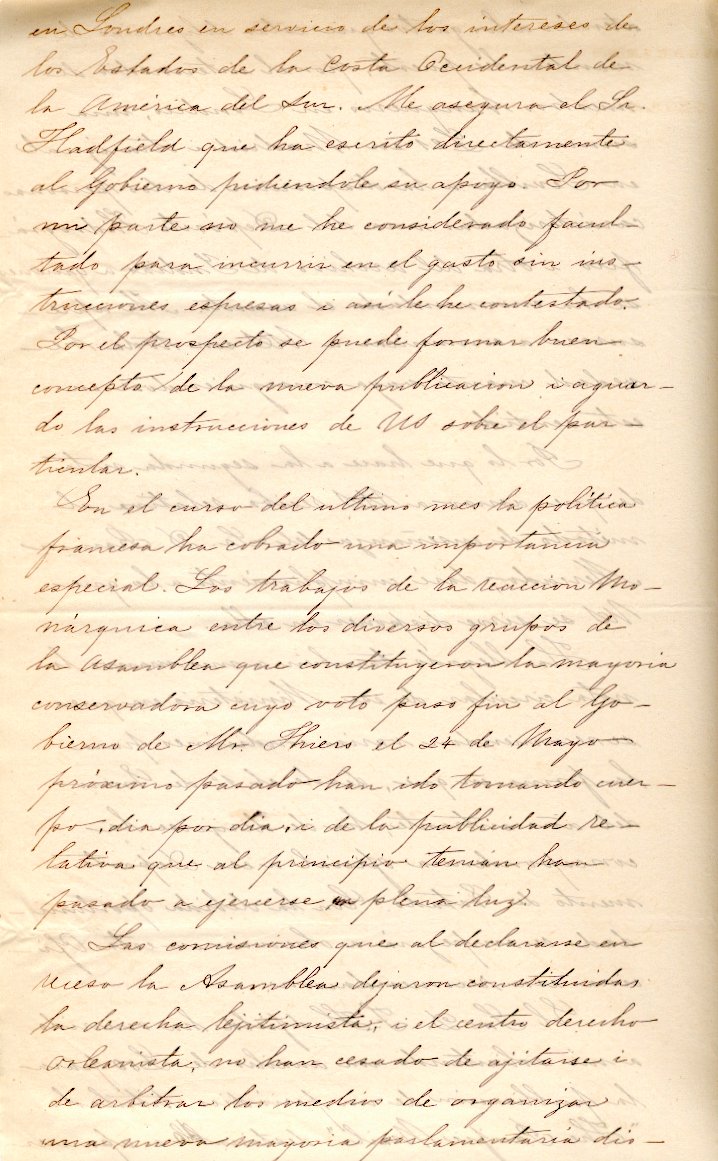 en Londres en servicio de los intereses de
los Estados de la Costa Occidental de
la América del Sur. Me asegura el Sr.
Hadfield que ha escrito directamente
al Gobierno pidiendole su apoyo. Por
mi parte no me he considerado facul-
tado para incurrir en el gasto sin ins-
trucciones espresas i así le he contestado.
Por el prospecto se puede formar buen
concepto de la nueva publicacion i aguar-
do las instrucciones de US sobre el par-
ticular.
En el curso del ultimo mes la política
francesa ha cobrado una importancia
especial. Los trabajos de la reaccion Mo-
nárquica entre los diversos grupos de
la Asamblea que constituyeron la mayoria
conservadora cuyo voto puso fin al Go-
bierno de Mr. Thiers el 24 de Mayo
próximo pasado han ido tomando cuer-
po, dia por dia, i de la publicidad re-
lativa que al principio tenian han
pasado a ejercerse en plena luz.
Las comisiones que al declararse en
receso la Asamblea dejaron constituidas
la derecha lejitimista, i el centro derecho
orleanista, no han cesado de ajitarse i
de arbitrar los medios de organizar
una nueva mayoría parlamentaria dis-